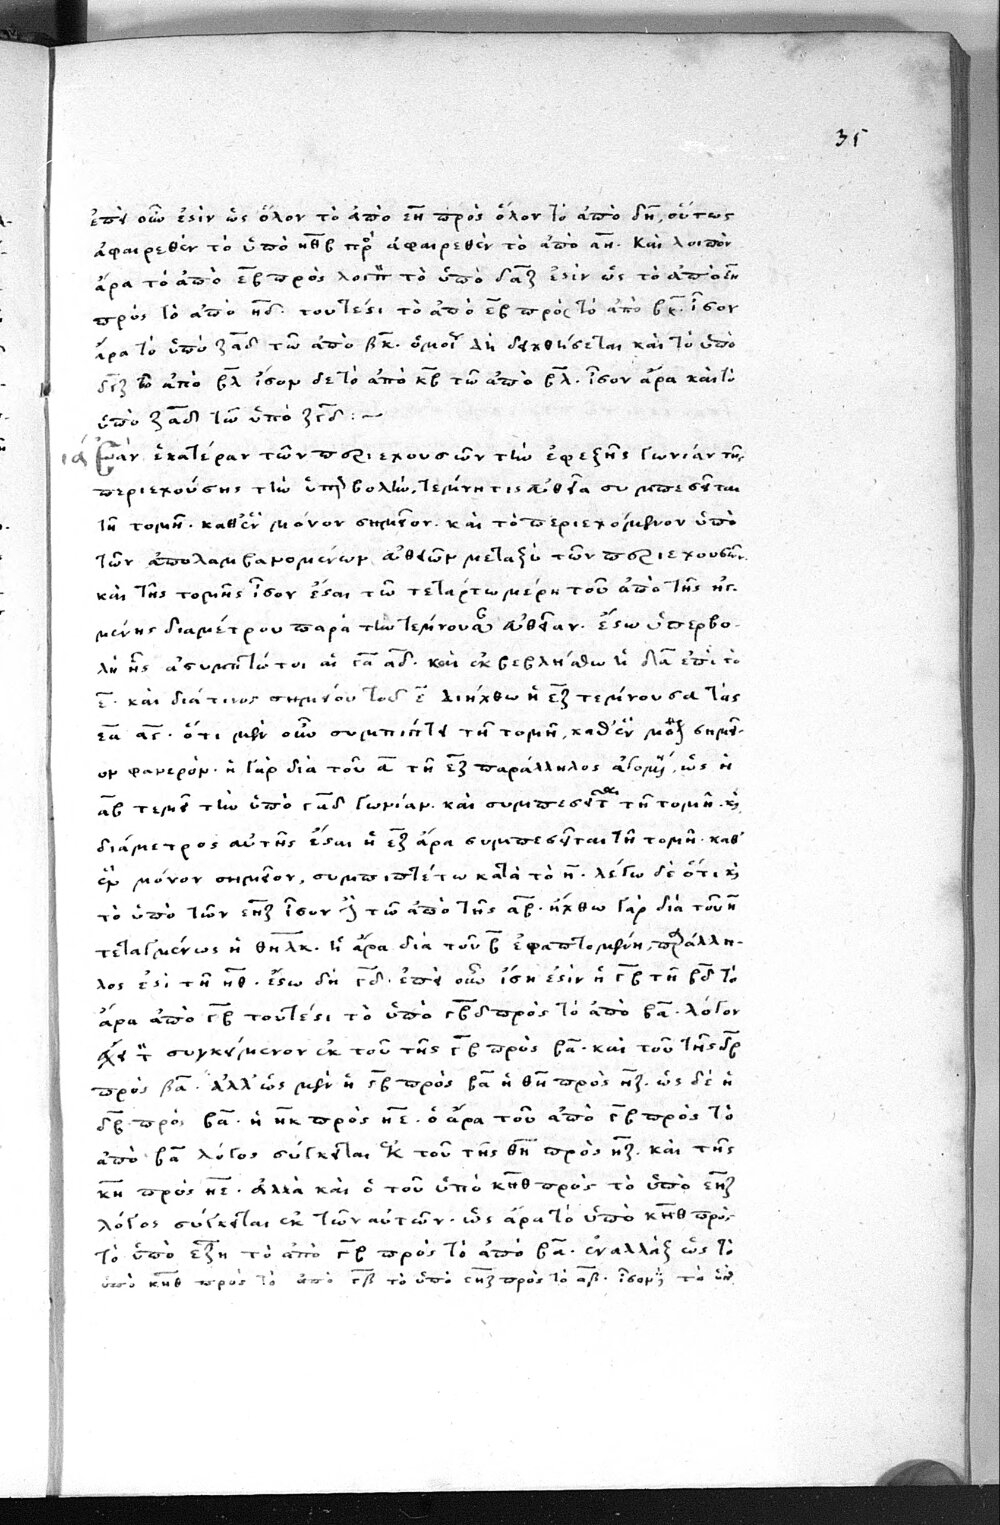 35
ἐπεὶ οὖν ἐστὶν ὡς ὅλον τὸ ἀπὸ εη πρὸς ὅλον τὸ ἀπὸ δη, οὕτως
ἀφαιρεθὲν τὸ ὑπὸ ηθβ πρὸς ἀφαιρεθὲν τὸ ἀπὸ αη. καὶ λοιπὸν
ἄρα τὸ ἀπὸ εβ πρὸς λοιπὸν τὸ ὑπὸ δαζ ἐστὶν ὡς τὸ ἀπὸ εη
πρὸς τὸ ἀπὸ ηδ. τουτέστι τὸ ἀπὸ εβ πρὸς τὸ ἀπὸ βκ. ἴσον
ἄρα τὸ ὑπὸ ζαδ τῶ ἀπὸ βκ. ὁμοί δὴ δειχθήσεται καὶ τὸ ὑπὸ
δεζ τῶ ἀπὸ βλ ἴσον δὲ τὸ ἀπὸ κβ τῶ ἀπὸ βλ. ἴσον ἄρα καὶ τὸ
ὑπὸ ζαδ τῶ ὑπὸ ζεδ : ~
ια Ἐὰν ἑκατέραν τῶν περιεχουσῶν τὴν ἐφεξῆς γωνίαν τῆς
περιεχούσης τὴν ὑπερβολὴν, τέμνη τις εὐθεῖα συμπεσεῖται
τῆ τομῆ. καθ' ἓν μόνον σημεῖον. καὶ τὸ περιεχόμενον ὑπὸ
τῶν ἀπολαμβανομένων εὐθειῶν μεταξὺ τῶν περιεχουσῶν.
καὶ τῆς τομῆς ἴσον ἔσται τῶ τετάρτω μέρη τοῦ ἀπὸ τῆς ἠγ-
μένης διαμέτρου παρὰ τὴν τέμνουσαν εὐθεῖαν. ἔστω ὑπερβο-
λὴ ἧς ἀσυμπτωτοι αἱ γα αδ. καὶ ἐκβεβλήσθω ἡ δα ἐπὶ τὸ
ε. καὶ διά τινος σημείου τοῦ ε διήχθω ἡ εζ τέμνουσα τὰς
εα αγ. ὅτι μὲν οὖν συμπίπτει τῆ τομῆ, καθ' ἓν μόνον σημεῖ-
ον φανερόν. ἡ γὰρ διὰ τοῦ α τῆ εζ παράλληλος ἀγομένη, ὡς ἡ
αβ τεμεῖ τὴν ὑπὸ γαδ γωνίαν. καὶ συμπεσεῖται τῆ τομῆ. καὶ
διάμετρος αὐτῆς ἔσται ἡ εζ ἄρα συμπεσεῖται τῆ τομῆ. καθ'
ἓν μόνον σημεῖον, συμπιπτέτω κατὰ τὸ η. λέγω δὲ ὅτι καὶ
τὸ ὑπὸ τῶν εηζ ἴσον ἐστὶ τῶ ἀπὸ τῆς αβ. ἤχθω γὰρ διὰ τοῦ η
τεταγμένως ἡ θηλκ. ἡ ἄρα διὰ τοῦ β ἐφαπτομένη, παράλλη-
λος ἐστὶ τῆ ηθ. ἔστω δὴ γδ. ἐπεὶ οὖν ἴση ἐστὶν ἡ γβ τῆ βδ τὸ
ἄρα ἀπὸ γβ τουτέστι τὸ ὑπὸ γβδ πρὸς τὸ ἀπὸ βα. λόγον
ἔχει τὸν συγκείμενον ἐκ τοῦ τῆς γβ πρὸς βα. καὶ τοῦ τῆς δβ
πρὸς βα. ἀλλ' ὡς μὲν ἡ γβ πρὸς βα ἡ θη πρὸς ηζ. ὡς δὲ ἡ
δβ πρὸς βα. ἡ ηκ πρὸς ηε. ὁ ἄρα τοῦ ἀπὸ γβ πρὸς τὸ
ἀπὸ βα λόγος σύγκειται ἐκ τοῦ τῆς θη πρὸς ηζ. καὶ τῆς
κη πρὸς ηε. ἀλλὰ καὶ ὁ τοῦ ὑπὸ κηθ πρὸς τὸ ὑπὸ εηζ
λόγος σύγκειται ἐκ τῶν αὐτῶν. ὡς ἄρα τὸ ὑπὸ κηθ πρὸς
τὸ ὑπὸ εζη τὸ ἀπὸ γβ πρὸς τὸ ἀπὸ βα. ἐναλλὰξ ὡς τὸ
ὑπὸ κηθ πρὸς τὸ ἀπὸ γβ τὸ ὑπὸ εηζ πρὸς τὸ αβ. ἴσον τὸ ὑπ